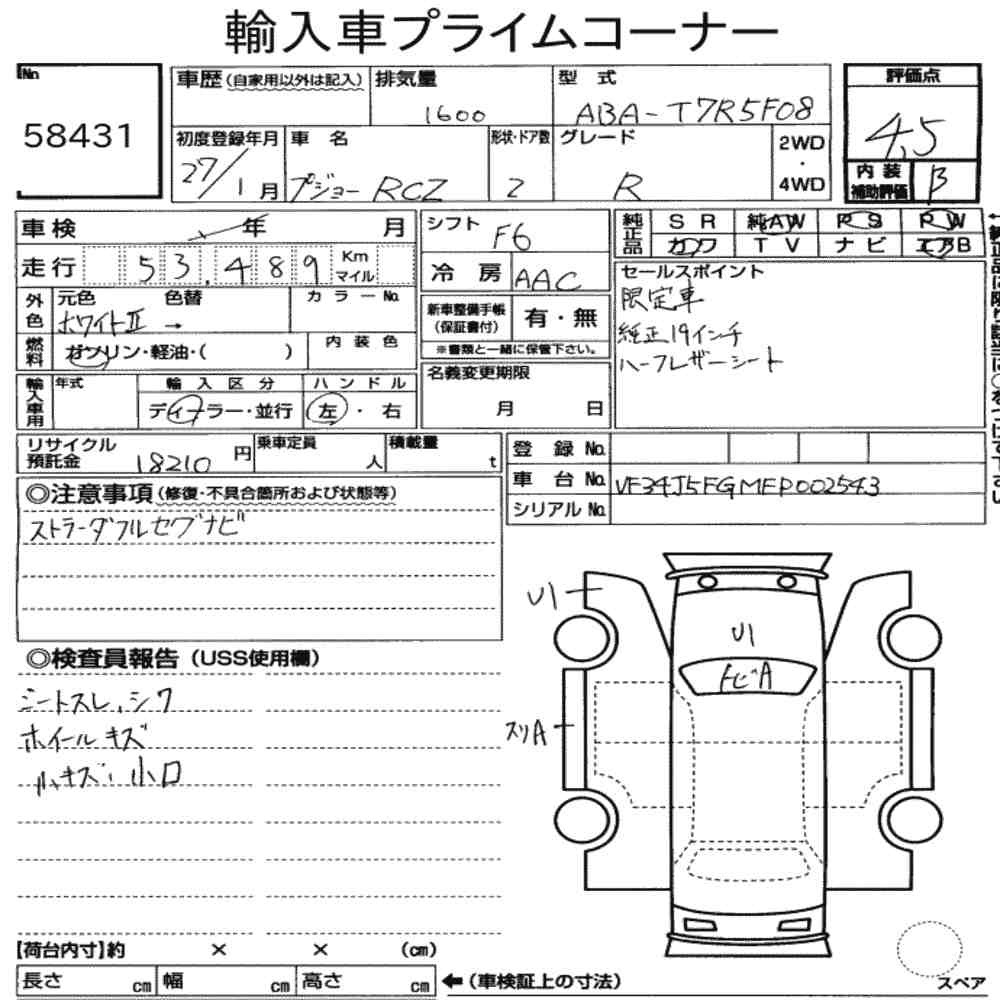 輸入車プライムコーナー
No
58431
車歴(自家用以外は記入)
排気量
1600
型 式
ABA-T7R5F08
評価点
4,5
初度登録年月
27/1月
車 名
プジョー RCZ
形状・ドア数
2
グレード
R
2WD
・
4WD
内 装
補助評価
B
車検
年 月
走行 53,489 Km
マイル
外色
元色 色替
ホワイトⅡ →
カラーNo.
燃料
ガソリン・軽油・( )
内 装 色
シフト
F6
冷 房
AAC
新車整備手帳
(保証書付)
有・無
※書類と一緒に保管下さい。
純正品
SR 純AW PS PW
カワ TV ナビ エアB
セールスポイント
限定車
純正19インチ
ハーフレザーシート
輸入車用
年式
輸 入 区 分
ディーラー・並行
ハ ン ド ル
左・右
名義変更期限
月 日
リサイクル
預託金
18210 円
乗車定員
人
積載量
t
登 録 No.
車 台 No.
VF34J5FGMFP002543
シリアル No.
◎注意事項(修復・不具合箇所および状態等)
ストラーダフルセグナビ
◎検査員報告(USS使用欄)
シートスレ,シワ
ホイールキズ
小キズ、小凹
U1
U1
トビA
スリA
【荷台内寸】約 × × (cm)
長さ cm 幅 cm 高さ cm
←(車検証上の寸法)
スペア